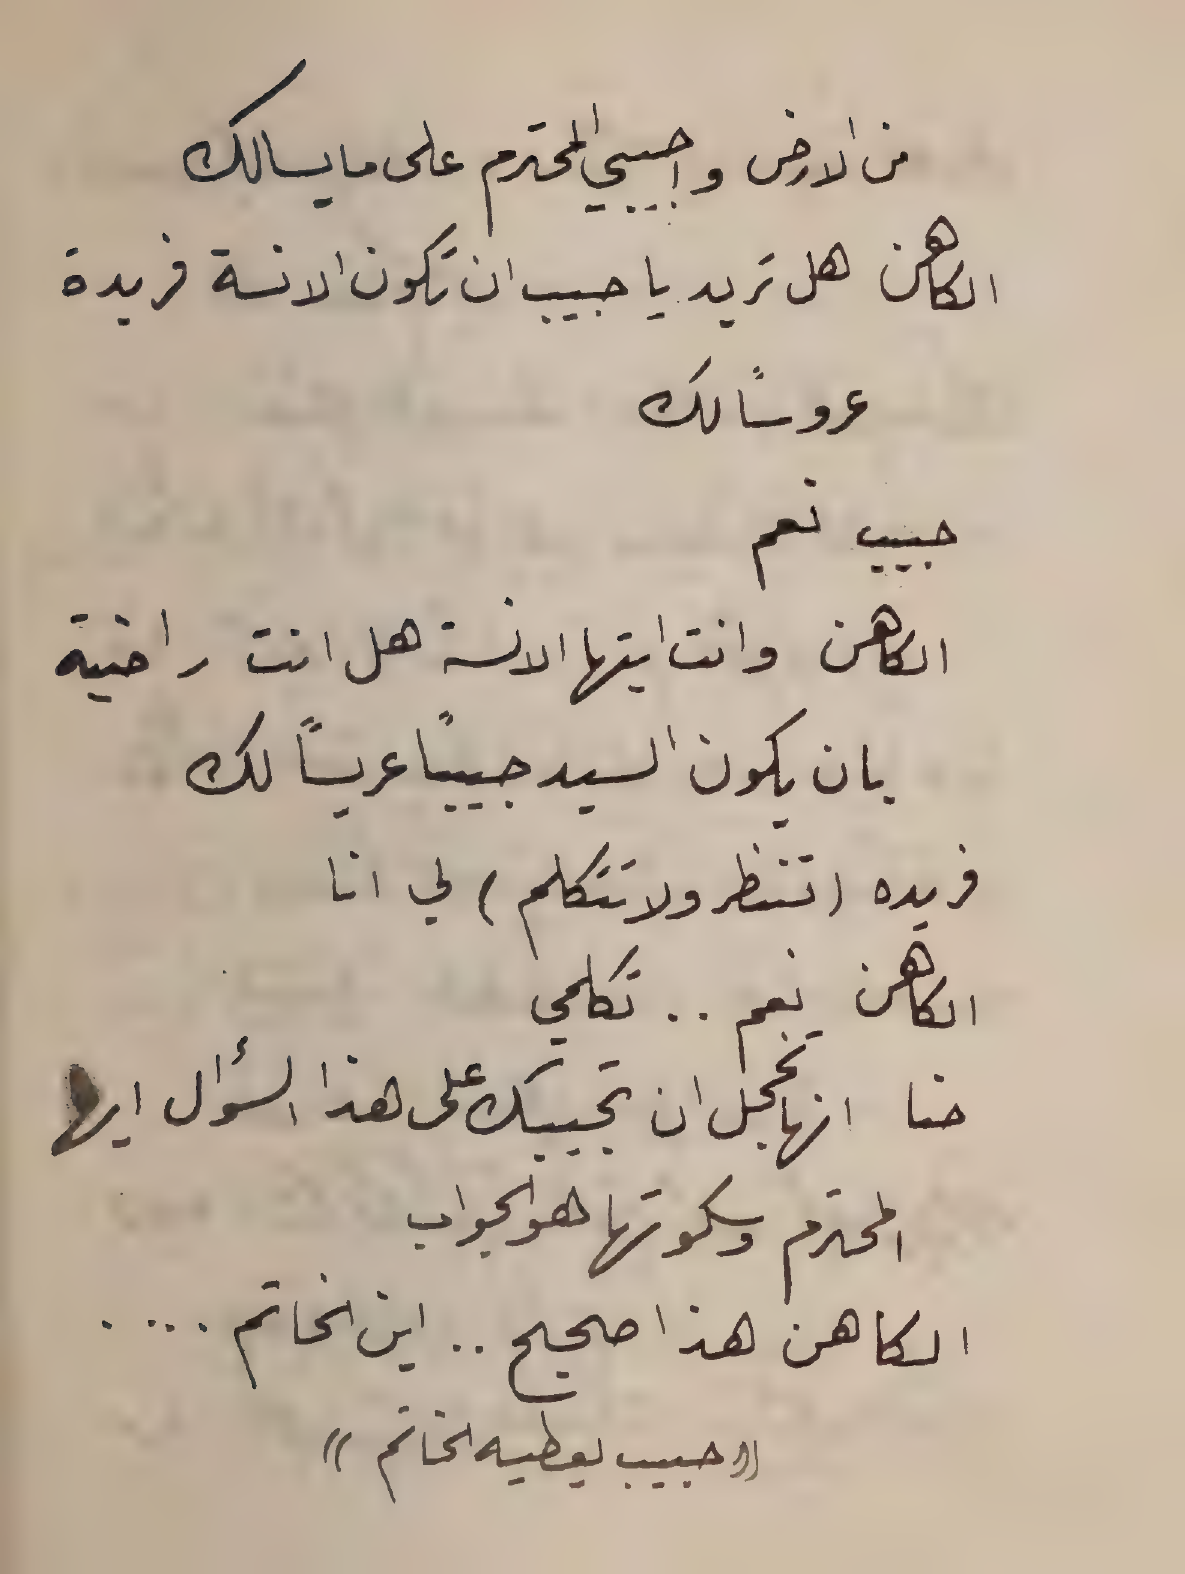 من الارض واجيبي المحترم على ما يسالك
الكاهن هل تريد يا حبيب ان تكون الانسة فريدة
عروسًا لك
حبيب نعم
الكاهن وانت ايتها الانسة هل انت راضية
بان يكون السيد حبيبًا عريسًا لك
فريده (تنظر ولا تتكلم) لي انا
الكاهن نعم .. تكلمي
حنا انها تخجل ان تجيبك على هذا السؤال ايها
المحترم وسكوتها هو الجواب
الكاهن هذا صحيح .. اين الخاتم ....
((حبيب يعطيه الخاتم))